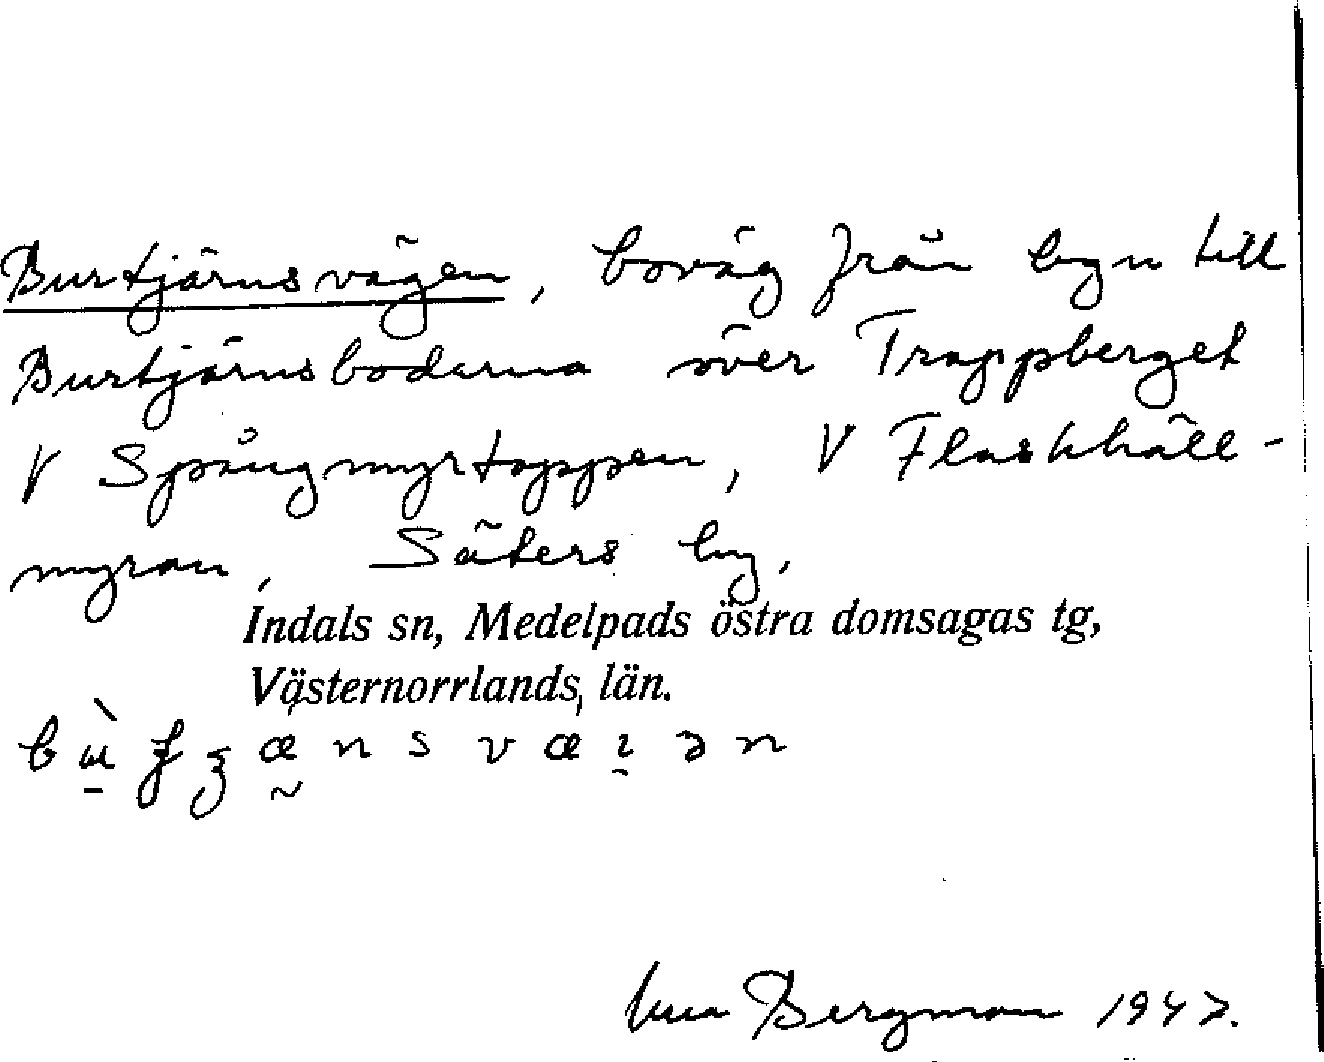 Burtjärnsvägen, boväg från byn till
Burtjärnsboderna över Trappberget
V Spångmyrtoppen, V Flaskhäll-
myran, Säters by,
Indals sn, Medelpads östra domsagas tg,
Västernorrlands, län.
Bergman 1947.